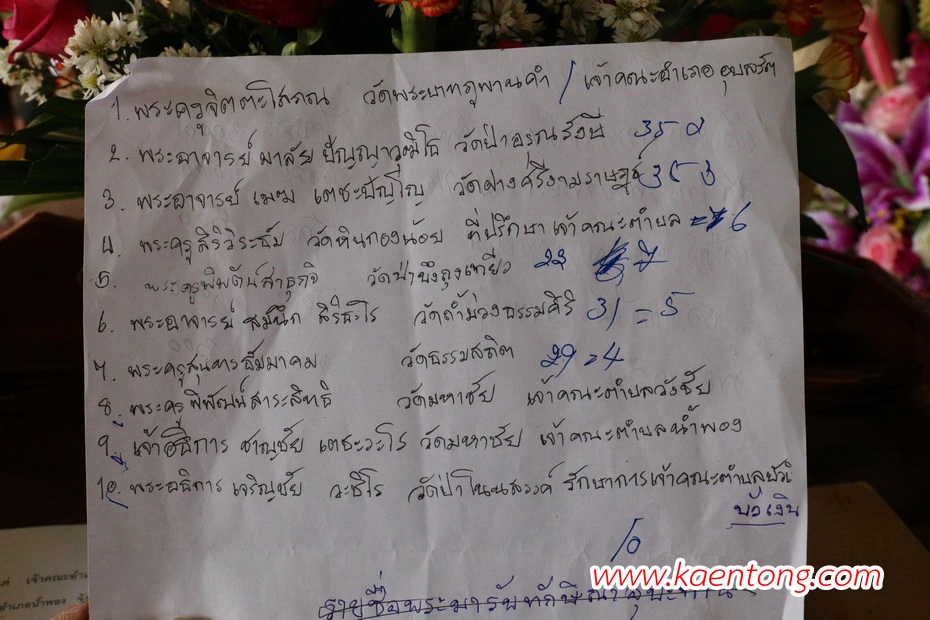 1. พระครูจิตตะโสภณ วัดพระบาทภูพานคำ / เจ้าคณะอำเภออุบลรัตน์
2. พระอาจารย์ มาลัย ปัญญาวุฒิโธ วัดป่าอรณรังษี 35
3. พระอาจารย์ เตชะปัญโญ วัดฝางศรีงามราษฎร์ 35 3
4. พระครูสิริวิระธัม วัดหินกองน้อย ที่ปรึกษาเจ้าคณะตำบล = 6
5. พระครูพิพัฒน์สาธุกิจ วัดป่าบึงถุงเทียว 22 7
6. พระอาจารย์ สมนึก สิริธะโร วัดถ้ำม่วงธรรมคิริ 31 = 5
7. พระครูสุนทรธัมมาคม วัดธรรมสถิต 29 = 4
8. พระครูพิพัฒน์สาระสิทธิ วัดมหาชัย เจ้าคณะตำบลวังชัย
9. เจ้าอธิการ ชาญชัย เตชะวะโร วัดมหาชัย เจ้าคณะตำบลน้ำพอง
10. พระอธิการ เจริญชัย วัดป่าโนนสวรรค์ รักษาการเจ้าคณะตำบล
บัวเงิน
10
รายชื่อพระมารับทักษิณา
www.kaentong.com
เจ้าคณะอำเ
อำเภอน้ำพอง